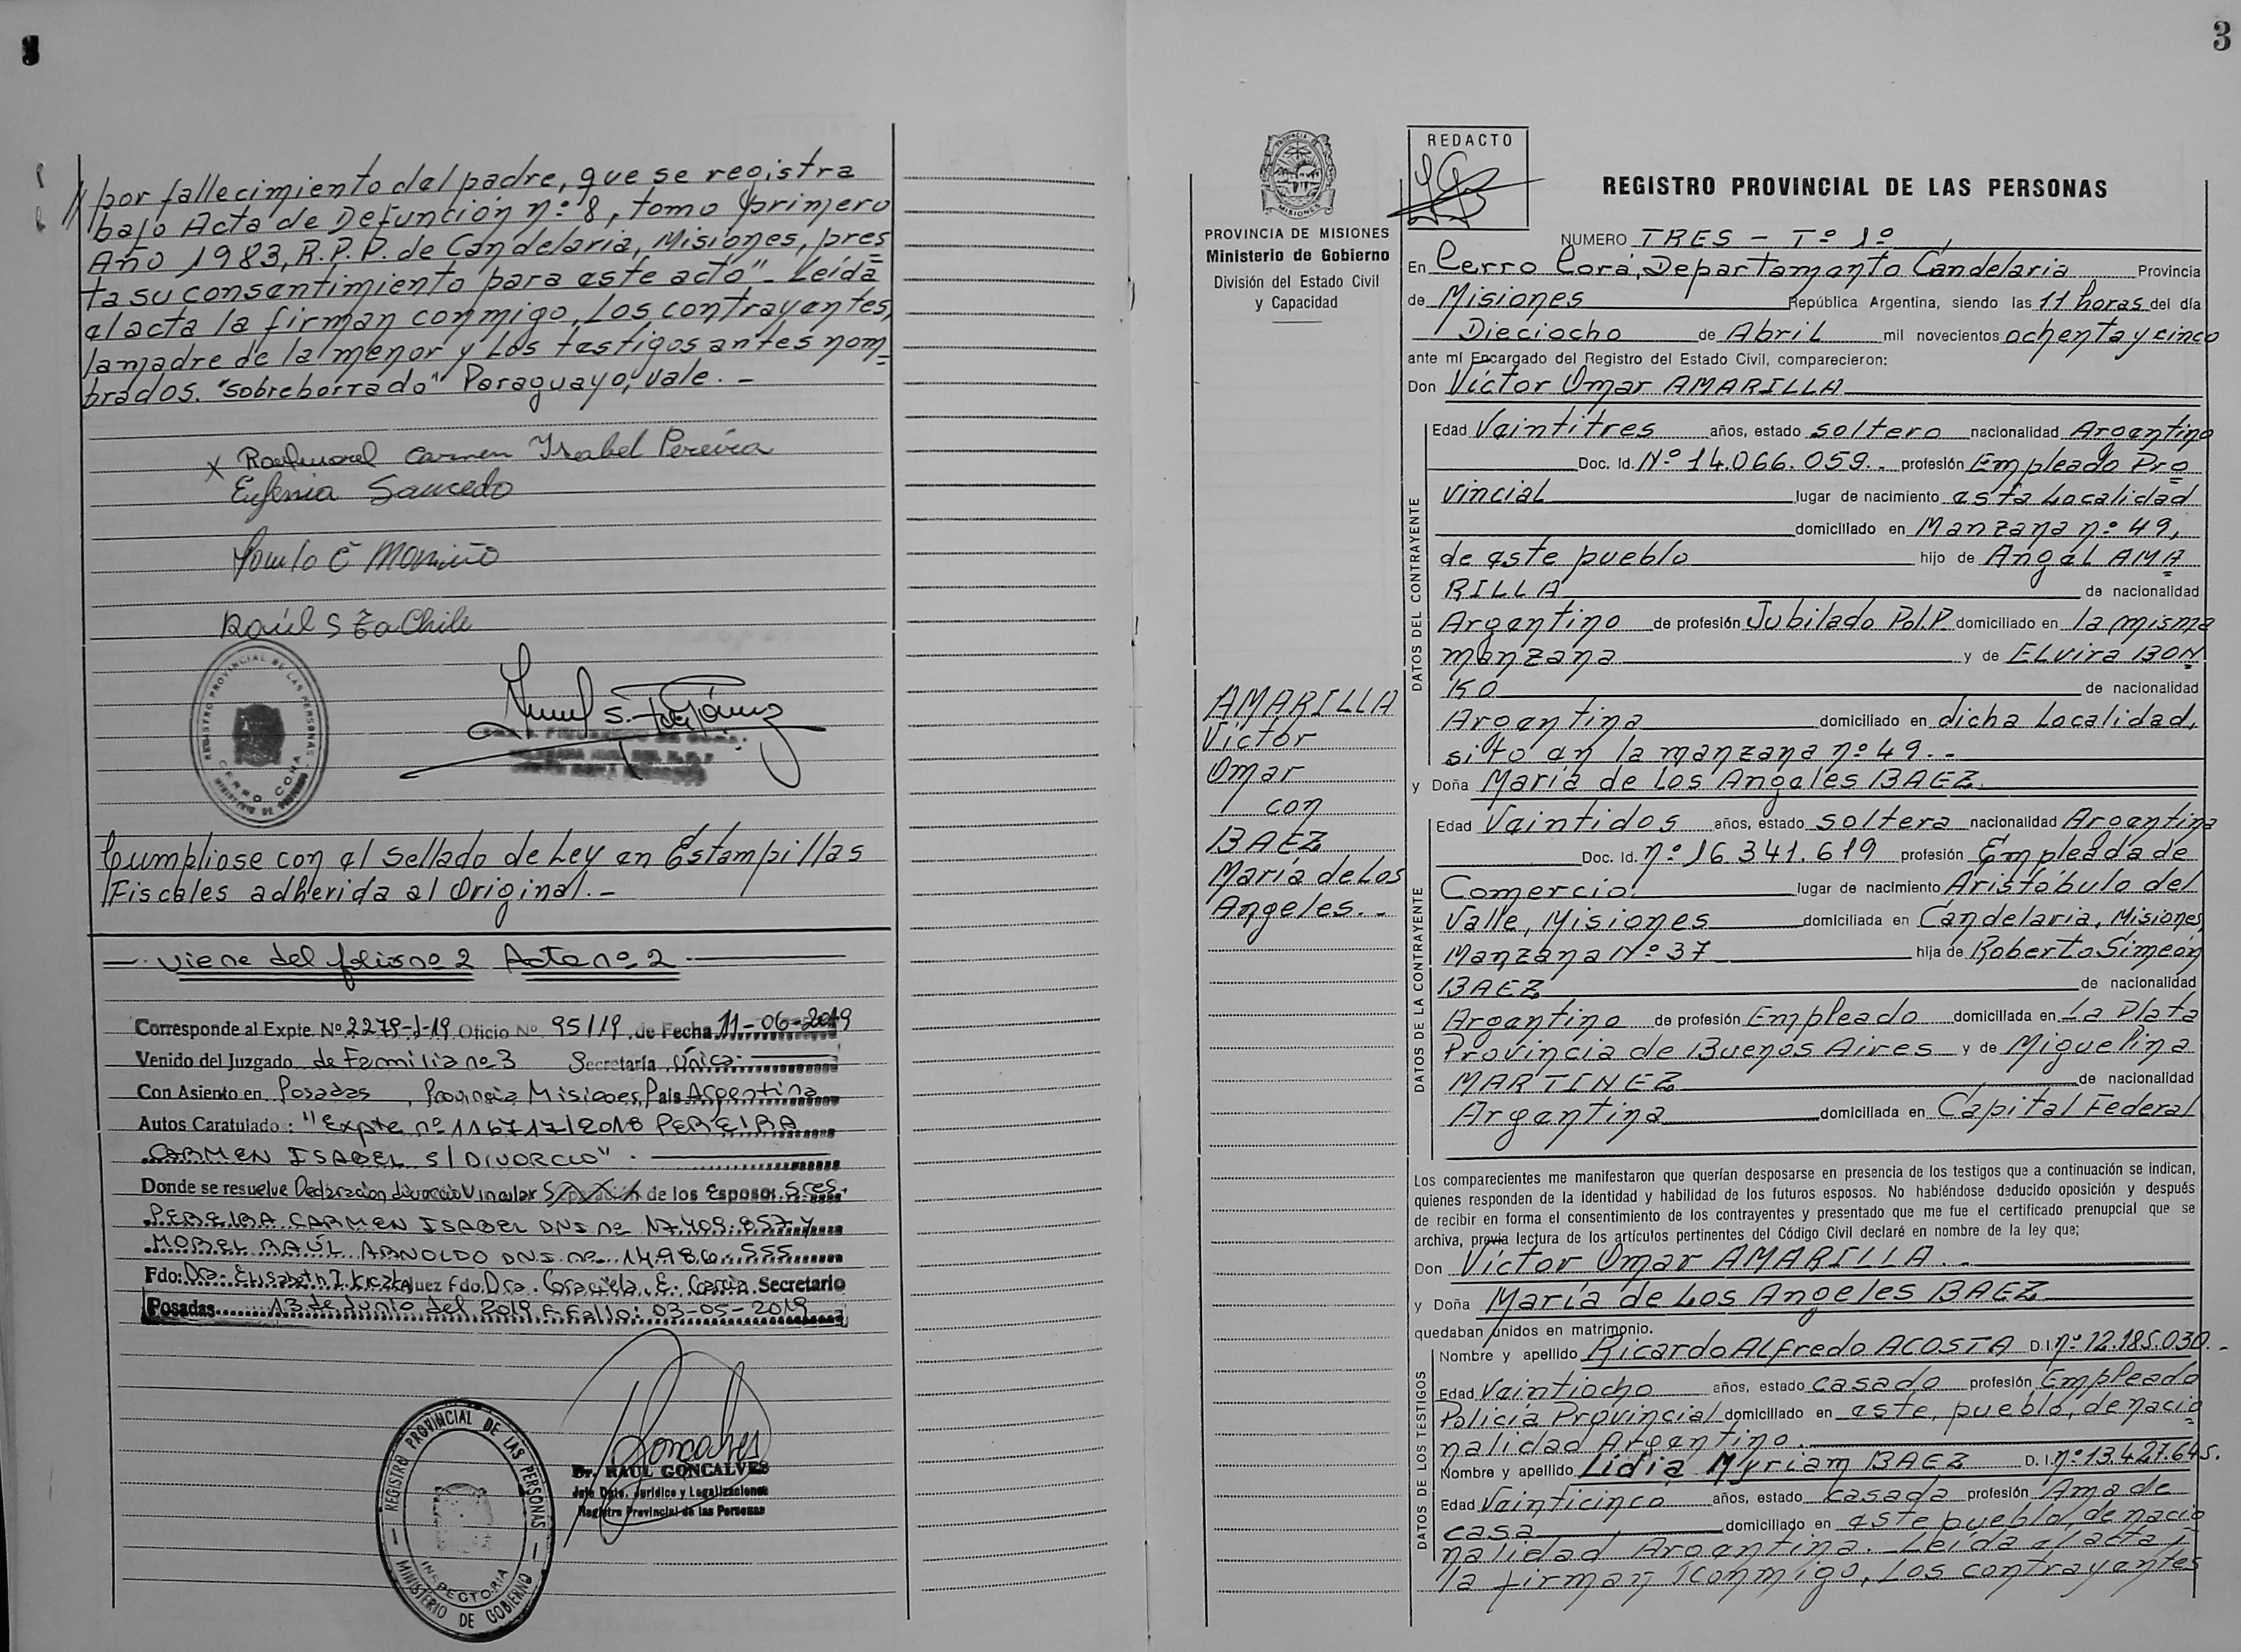 // por fallecimiento del padre, que se registra
bajo Acta de Defunción nº 8, tomo primero
Año 1983, R.P.P. de Candelaria, Misiones, pres
ta su consentimiento para este acto" - Leída
el acta la firman conmigo, los contrayentes,
la madre de la menor y los testigos antes nom
brados. "sobreborrado" Paraguayo, vale. -
x Raul morel Carmen Ysabel Pereira
Eufenia Saucedo
Raúl S
REGISTRO PROVINCIAL DE LAS PERSONAS
CERRO CORA
MINISTERIO DE GOBIERNO
Cumpliose con el sellado de Ley en Estampillas
Fiscales adherida al Original. -
- viene del folio nº 2 Acta nº 2 -
Corresponde al Expte. Nº 2279-J-19 Oficio Nº 95/19 de Fecha 11-06-2019
Venido del Juzgado de Familia nº 3 Secretaría Única:
Con Asiento en Posadas, Provincia Misiones, País Argentina
Autos Caratulado: "Expte nº 116717/2018 PEREIRA
CARMEN ISABEL S/ DIVORCIO".
Donde se resuelve Declaracion divorcio Vincular de los Esposos Sres.
PEREIRA CARMEN ISABEL DNI nº 17.409.857 y
MOREL RAÚL ARNOLDO DNI nº 14.986.555
Fdo: Dra. Elisabeth I. Juez Fdo. Dra. Graciela E. Garcia Secretario
Posadas 13 de Junio del 2019 F. Fallo: 03-05-2019
Goncalves
Dr. RAUL GONCALVES
Jefe Dpto. Jurídico y Legalizaciones
Registro Provincial de las Personas
REGISTRO PROVINCIAL DE LAS PERSONAS
INSPECTORIA
MINISTERIO DE GOBIERNO
3
PROVINCIA DE MISIONES
PROVINCIA DE MISIONES
Ministerio de Gobierno
División del Estado Civil
y Capacidad
AMARILLA
Víctor
Omar
con
BAEZ
María de Los
Angeles. -
REDACTO
REGISTRO PROVINCIAL DE LAS PERSONAS
NUMERO TRES - Tº 1º
En Cerro Corá, Departamento Candelaria Provincia
de Misiones República Argentina, siendo las 11 horas del día
Dieciocho de Abril mil novecientos ochenta y cinco
ante mí Encargado del Registro del Estado Civil, comparecieron:
Don Víctor Omar AMARILLA
DATOS DEL CONTRAYENTE
Edad Veintitres años, estado soltero nacionalidad Argentino
Doc. Id. Nº 14.066.059. - profesión Empleado Pro
vincial lugar de nacimiento esta Localidad
domiciliado en Manzana nº 49,
de este pueblo hijo de Angel AMA
RILLA de nacionalidad
Argentino de profesión Jubilado Pol.P. domiciliado en la misma
manzana y de ELvira BON
KO de nacionalidad
Argentina domiciliado en dicha Localidad,
sito en la manzana nº 49. -
y Doña María de Los Angeles BAEZ
DATOS DE LA CONTRAYENTE
Edad Veintidos años, estado soltera nacionalidad Argentina
Doc. Id. nº 16.341.619 profesión Empleada de
Comercio lugar de nacimiento Aristóbulo del
Valle, Misiones domiciliada en Candelaria, Misiones,
Manzana Nº 37 hija de Roberto Simeón
BAEZ de nacionalidad
Argentino de profesión Empleado domiciliada en La Plata
Provincia de Buenos Aires y de Miguelina
MARTINEZ de nacionalidad
Argentina domiciliada en Capital Federal
Los comparecientes me manifestaron que querían desposarse en presencia de los testigos que a continuación se indican,
quienes responden de la identidad y habilidad de los futuros esposos. No habiéndose deducido oposición y después
de recibir en forma el consentimiento de los contrayentes y presentado que me fue el certificado prenupcial que se
archiva, previa lectura de los artículos pertinentes del Código Civil declaré en nombre de la ley que;
Don Víctor Omar AMARILLA. -
y Doña María de Los Angeles BAEZ
quedaban unidos en matrimonio.
DATOS DE LOS TESTIGOS
Nombre y apellido Ricardo ALfredo ACOSTA D.I. nº 12.185.030. -
Edad Veintiocho años, estado casado profesión Empleado
Policía Provincial domiciliado en este pueblo, de nacio
nalidad Argentino.
Nombre y apellido Lidia Myriam BAEZ D.I. nº 13.427.645.
Edad Veinticinco años, estado casada profesión Ama de
casa domiciliado en este pueblo, de nacio
nalidad Argentina. - Leída el acta
la firman conmigo, los contrayentes